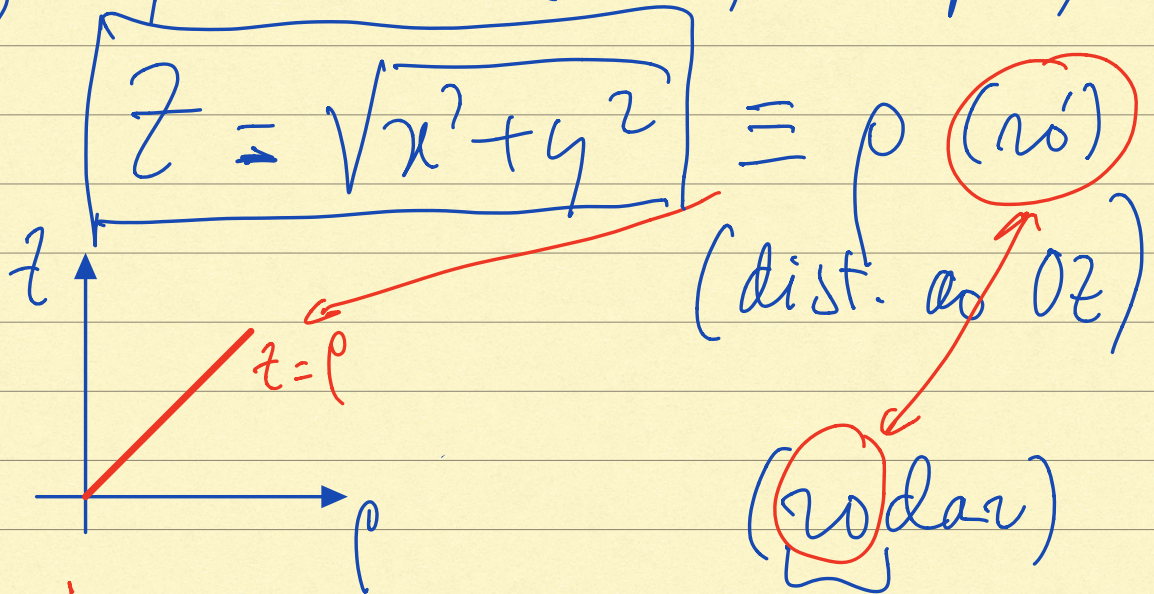 z = √(x²+y²) ≡ ρ (ró)
(dist. ao Oz)
z
z = ρ
ρ
(rodar)